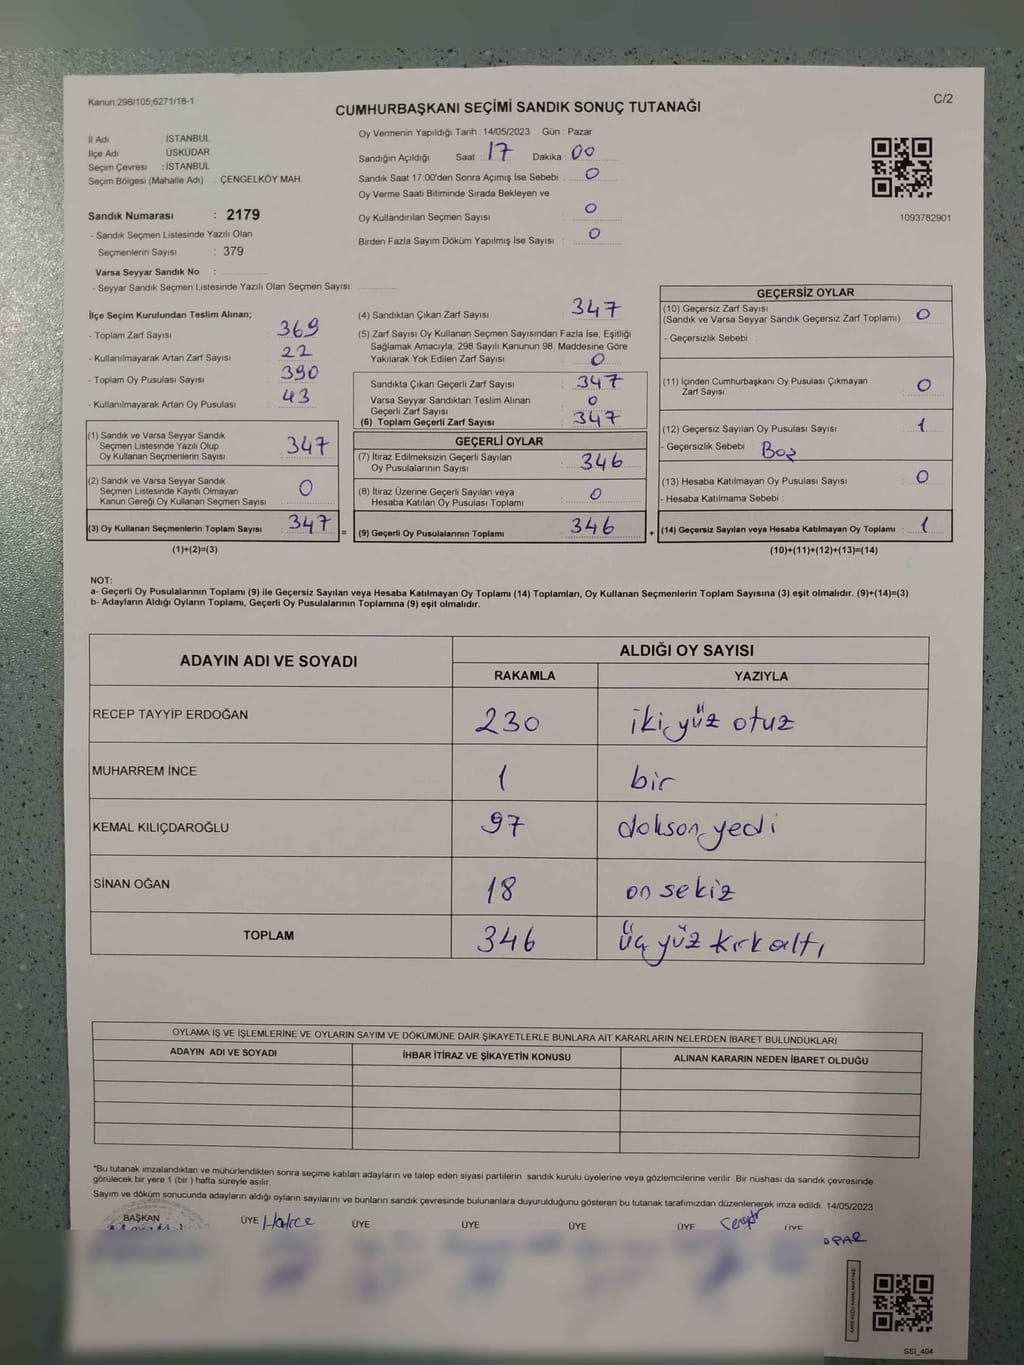 Kanun;298/105;6271/18-1
C/2
CUMHURBAŞKANI SEÇİMİ SANDIK SONUÇ TUTANAĞI
İl Adı : İSTANBUL
İlçe Adı : ÜSKÜDAR
Seçim Çevresi : İSTANBUL
Seçim Bölgesi (Mahalle Adı) : ÇENGELKÖY MAH.
Sandık Numarası : 2179
- Sandık Seçmen Listesinde Yazılı Olan
Seçmenlerin Sayısı : 379
Varsa Seyyar Sandık No :
- Seyyar Sandık Seçmen Listesinde Yazılı Olan Seçmen Sayısı:
Oy Vermenin Yapıldığı Tarih : 14/05/2023 Gün : Pazar
Sandığın Açıldığı Saat : 17 Dakika : 00
Sandık Saat 17:00'den Sonra Açımış İse Sebebi : 0
Oy Verme Saati Bitiminde Sırada Bekleyen ve
Oy Kullandırılan Seçmen Sayısı : 0
Birden Fazla Sayım Döküm Yapılmış İse Sayısı : 0
1093782901
İlçe Seçim Kurulundan Teslim Alınan;
- Toplam Zarf Sayısı : 369
- Kullanılmayarak Artan Zarf Sayısı : 22
- Toplam Oy Pusulası Sayısı : 390
- Kullanılmayarak Artan Oy Pusulası : 43
(1) Sandık ve Varsa Seyyar Sandık
Seçmen Listesinde Yazılı Olup
Oy Kullanan Seçmenlerin Sayısı : 347
(2) Sandık ve Varsa Seyyar Sandık
Seçmen Listesinde Kayıtlı Olmayan
Kanun Gereği Oy Kullanan Seçmen Sayısı : 0
(3) Oy Kullanan Seçmenlerin Toplam Sayısı : 347 =
(1)+(2)=(3)
(4) Sandıktan Çıkan Zarf Sayısı : 347
(5) Zarf Sayısı Oy Kullanan Seçmen Sayısından Fazla İse, Eşitliği
Sağlamak Amacıyla; 298 Sayılı Kanunun 98. Maddesine Göre
Yakılarak Yok Edilen Zarf Sayısı : 0
Sandıkta Çıkan Geçerli Zarf Sayısı : 347
Varsa Seyyar Sandıktan Teslim Alınan
Geçerli Zarf Sayısı : 0
(6) Toplam Geçerli Zarf Sayısı : 347
GEÇERLİ OYLAR
(7) İtiraz Edilmeksizin Geçerli Sayılan
Oy Pusulalarının Sayısı : 346
(8) İtiraz Üzerine Geçerli Sayılan veya
Hesaba Katılan Oy Pusulası Toplamı : 0
(9) Geçerli Oy Pusulalarının Toplamı : 346 +
GEÇERSİZ OYLAR
(10) Geçersiz Zarf Sayısı
(Sandık ve Varsa Seyyar Sandık Geçersiz Zarf Toplamı) : 0
- Geçersizlik Sebebi :
(11) İçinden Cumhurbaşkanı Oy Pusulası Çıkmayan
Zarf Sayısı : 0
(12) Geçersiz Sayılan Oy Pusulası Sayısı : 1
- Geçersizlik Sebebi : Boş
(13) Hesaba Katılmayan Oy Pusulası Sayısı : 0
- Hesaba Katılmama Sebebi :
(14) Geçersiz Sayılan veya Hesaba Katılmayan Oy Toplamı : 1
(10)+(11)+(12)+(13)=(14)
NOT:
a- Geçerli Oy Pusulalarının Toplamı (9) ile Geçersiz Sayılan veya Hesaba Katılmayan Oy Toplamı (14) Toplamları, Oy Kullanan Seçmenlerin Toplam Sayısına (3) eşit olmalıdır. (9)+(14)=(3)
b- Adayların Aldığı Oyların Toplamı, Geçerli Oy Pusulalarının Toplamına (9) eşit olmalıdır.
ADAYIN ADI VE SOYADI
ALDIĞI OY SAYISI
RAKAMLA YAZIYLA
RECEP TAYYİP ERDOĞAN 230 iki yüz otuz
MUHARREM İNCE 1 bir
KEMAL KILIÇDAROĞLU 97 doksan yedi
SİNAN OĞAN 18 on sekiz
TOPLAM 346 üç yüz kırk altı
OYLAMA İŞ VE İŞLEMLERİNE VE OYLARIN SAYIM VE DÖKÜMÜNE DAİR ŞİKAYETLERLE BUNLARA AİT KARARLARIN NELERDEN İBARET BULUNDUKLARI
ADAYIN ADI VE SOYADI İHBAR İTİRAZ VE ŞİKAYETİN KONUSU ALINAN KARARIN NEDEN İBARET OLDUĞU
*Bu tutanak imzalandıktan ve mühürlendikten sonra seçime katılan adayların ve talep eden siyasi partilerin sandık kurulu üyelerine veya gözlemcilerine verilir. Bir nüshası da sandık çevresinde
görülecek bir yere 1 (bir ) hafta süreyle asılır.
Sayım ve döküm sonucunda adayların aldığı oyların sayılarını ve bunların sandık çevresinde bulunanlara duyurulduğunu gösteren bu tutanak tarafımızdan düzenlenerek imza edildi. 14/05/2023
BAŞKAN ÜYE Hatice ÜYE ÜYE ÜYE ÜYE ÜYE
SSI_404